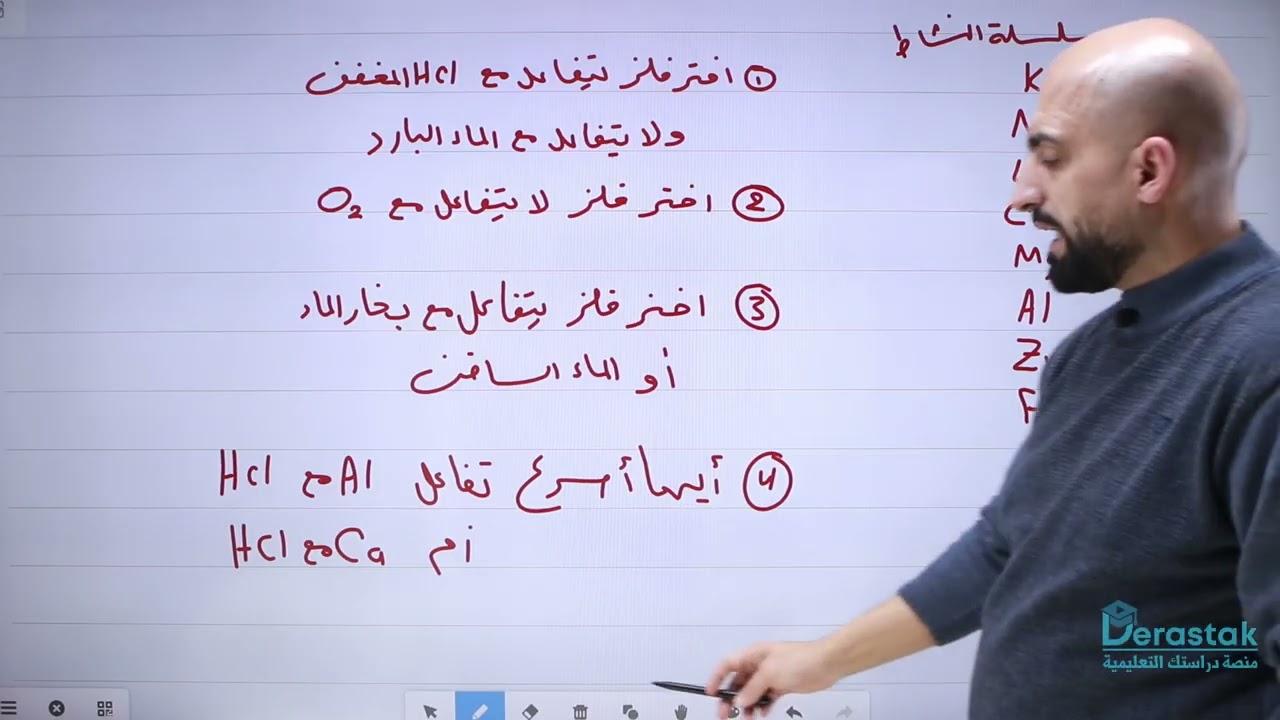 سلسلة النشاط
① اختر فلز يتفاعل مع HCl المخفف
ولا يتفاعل مع الماء البارد
② اختر فلز لا يتفاعل مع O₂
③ اختر فلز يتفاعل مع بخار الماء
أو الماء الساخن
④ أيهما أسرع تفاعل Al مع HCl
أم Ca مع HCl
K
Al
Derastak
منصة دراستك التعليمية